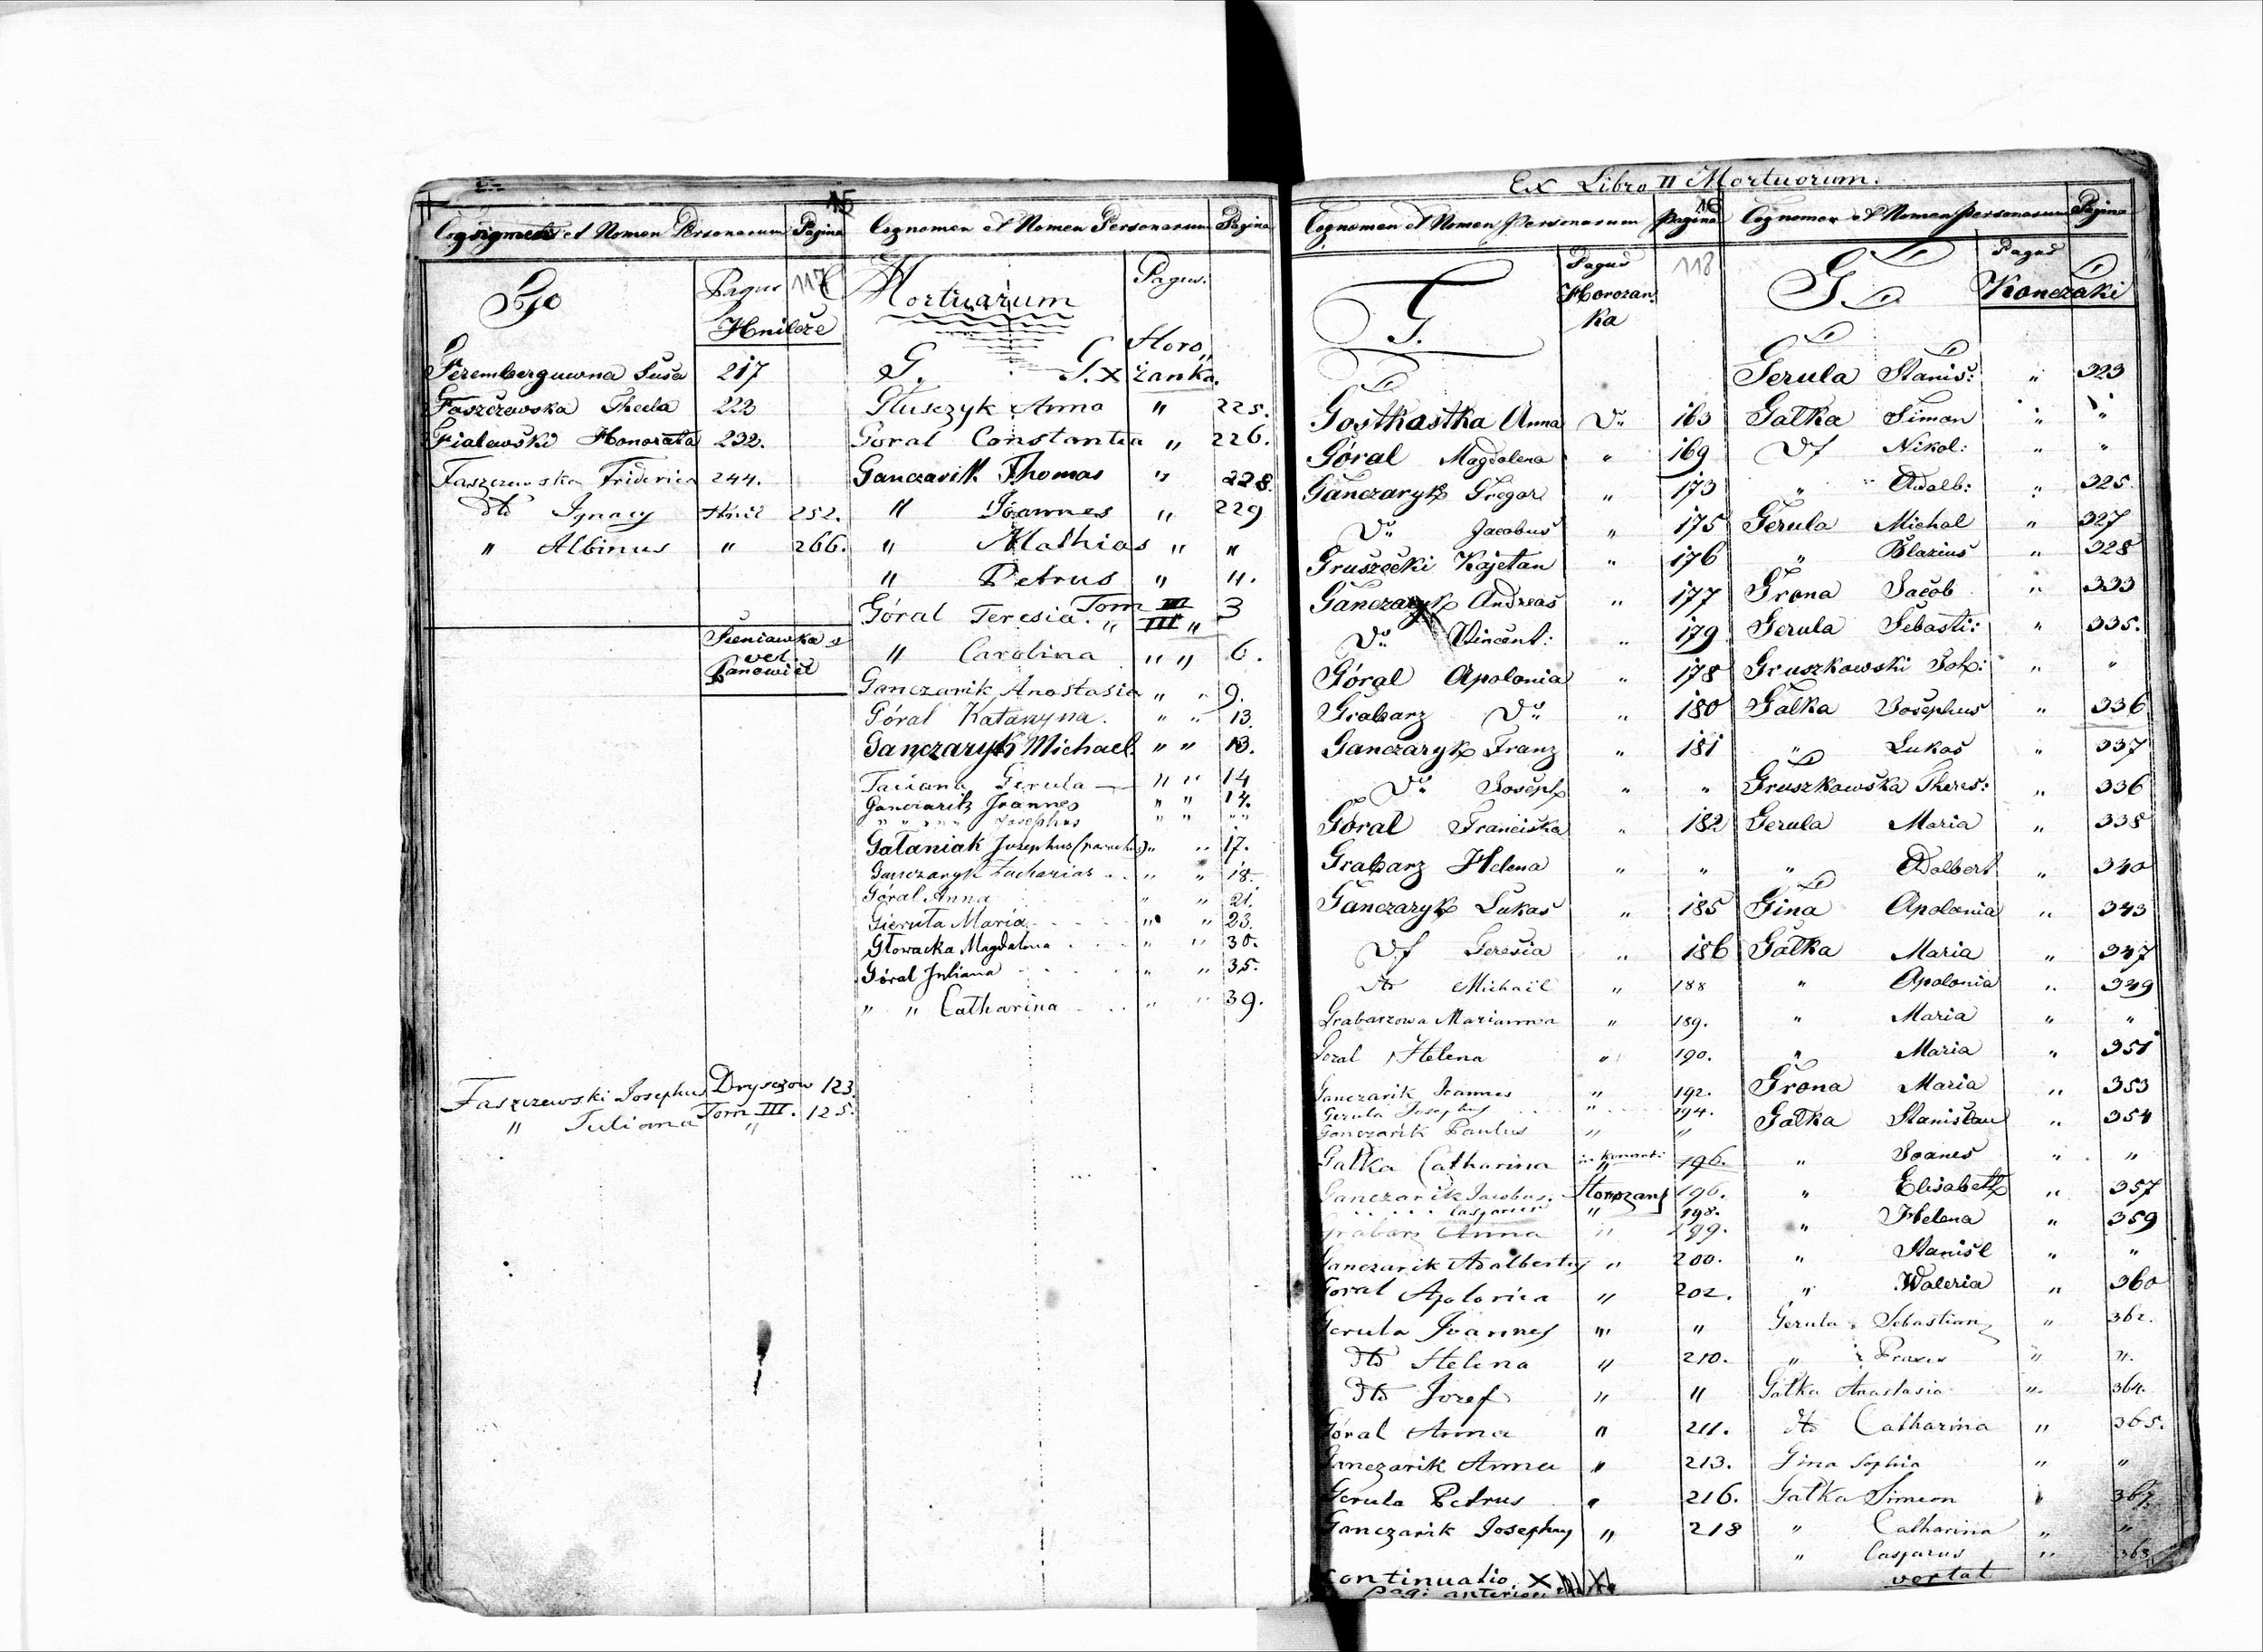 15
Cognomen et Nomen Personarum Pagina
Pagus 117
Hnilcze
Feremberguwna Susa 217
Faszczewska Thecla 223
Fialewski Honorata 232.
Faszczewska Friderica 244.
dto Ignacy Hnil 252.
" Albinus " 266.
Sieniawka
vel
Panowice
Faszczewski Josephus Dryszczow 123.
" Juliana Tom III. " 125.
Cognomen et Nomen Personarum Pagina
Mortuarum Pagus.
G. G. x Horo„
żanka.
Głusczyk Anna " 225.
Goral Constantia " 226.
Ganczarik Thomas " 228.
" Joannes " 229
" Mathias " "
" Petrus " ".
Góral Teresia. Tom III 3
" III "
" Carolina " " 6.
Ganczarik Anastasia " " 9.
Góral Katarzyna. " " 13.
Ganczaryk Michael " " 13.
Taciana Gerula — " " 14
Ganczarik Joannes " " 14.
" " " " Josephus " " " "
Gałaniak Josephus (parochus) " " 17.
Ganczaryk Zacharias . . " " 18.
Góral Anna " " 21.
Gieruła Maria " " 23.
Głowacka Magdalena " " 30.
Góral Juliana " " 35.
" " Catharina " " 39.
Ex Libro II Mortuorum.
16
Cognomen et Nomen Personarum Pagina
G. Pagus 118
Horozan
ka
Gostkastka Anna Do 163
Góral Magdalena " 169
Ganczaryk Gregor " 173
Do Jacobus " 175
Gruszecki Kajetan " 176
Ganczaryk Andreas " 177
Do Vincent: " 179
Góral Apolonia " 178
Grabarz Do " 180
Ganczaryk Franz " 181
Do Joseph " "
Góral Franciska " 182
Grabarz Helena " "
Ganczaryk Lukas " 185
Do Teresia " 186
dto Michaël " 188
Grabarzowa Marianna " 189.
Goral Helena " 190.
Ganczarik Joannes " 192.
Gerula Josephus " 194.
Ganczarik Paulus " "
Gałka Catharina " 196.
Ganczarik Jacobus. Horozan 196.
. . . . . Casparus " 198.
Grabarz Anna " 199.
Ganczarik Adalbertus " 200.
Goral Apolonia " 202.
Gerula Joannes " "
dto Helena " 210.
dto Jozef " "
Góral Anna " 211.
Ganczarik Anna " 213.
Gerula Petrus " 216.
Ganczarik Josephus " 218
Continuatio x
pag: anterior
Cognomen et Nomen Personarum Pagina
G Pagus
Konczaki
Gerula Stanis: " 323
Gałka Simon " "
Do Nikol: " "
" Adalb: " 325
Gerula Michal " 327
" Blazius " 328
Grona Jacob " 333
Gerula Sebasti: " 335.
Gruszkowski Joh: " "
Gałka Josephus " 336
" Lukas " 337
Gruszkowska Theres: " 336
Gerula Maria " 338
" Adalbert " 340
Gina Apolonia " 343
Gałka Maria " 347
" Apolonia " 349
" Maria " "
" Maria " 351
Grona Maria " 353
Gałka Stanislaus " 354
" Joanes " "
" Elisabeth " 357
" Helena " 359
" Stanisl " "
" Waleria " 360
Gerula Sebastian " 362.
" " ".
Gałka Anastasia " 364.
dto Catharina " 365.
Gina Sophia " "
Gałka Simeon " 367.
" Catharina " "
" Casparus " 368
vertat